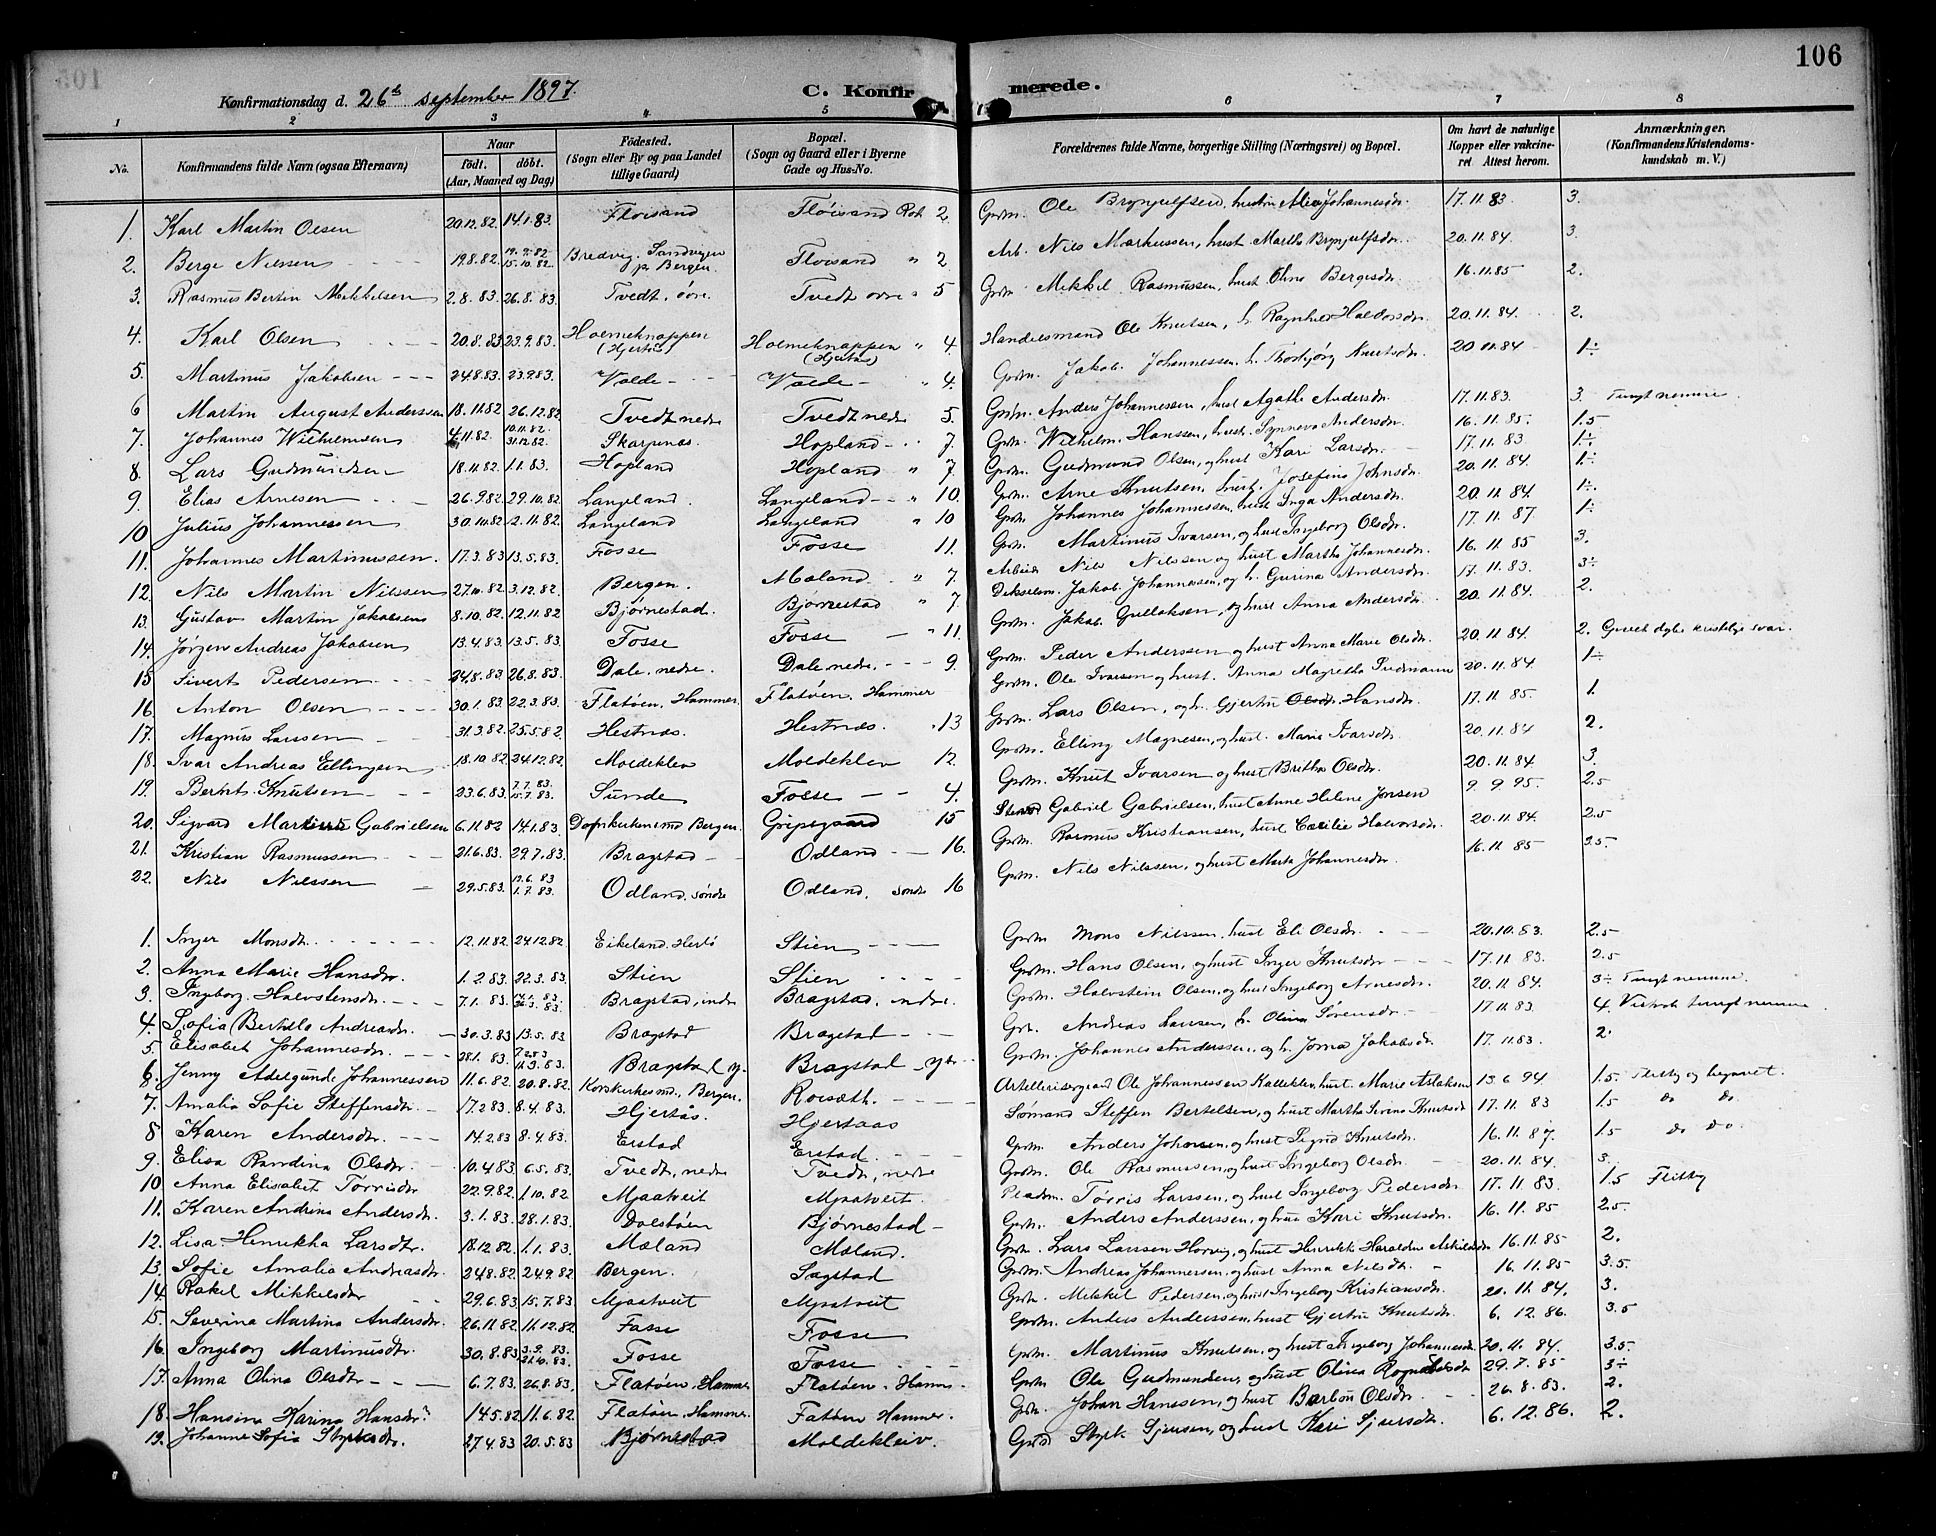 106
Konfirmationsdag d. 26de september 1897. C. Konfirmerede.
1 2 3 4 5 6 7 8
No. Konfirmandens fulde Navn (ogsaa Efternavn) Naar født. døbt. (Aar, Maaned og Dag) Fødested. (Sogn eller By og paa Landet tillige Gaard) Bopæl. (Sogn og Gaard eller i Byerne Gade og Hus-No. Forældrenes fulde Navne, borgerlige Stilling (Næringsvei) og Bopæl. Om havt de naturlige Kopper eller vakcineret Attest herom. Anmærkninger. (Konfirmandens Kristendomskundskab m. V.)
1. Karl Martin Olsen 20.12.82 14.1.83. Floisand Floisand Rot 2 Grdm. Ole Brynjulfsen, hustru Johannesdr. 17.11.83 3.
2. Berge Nilssen 19.8.82 19.9.82 15.10.82 Bredvig, Sandvigen p. Bergen. Floisand " 2 Arb. Nils Markussen, hust. Martha Brynjulfsdr. 20.11.84. 3.
3. Rasmus Bertin Mikkelsen 2.8.83. 26.8.83. Tvedt, øvre. Tvedt øvre " 5 Grdm. Mikkel Rasmussen, hust Oline Bergesdr. 16.11.85 2.
4. Karl Olsen 20.8.83 23.9.83. Holmeknappen (Hjertås) Holmeknappen (Hjertås) " 4. Handelsmand Ole Knutsen, h. Ragnhild Haldorsdr. 20.11.84. 2.
5. Martinus Jakobsen 24.8.83. 23.9.83. Valde Valde " 4. Grdm. Jakob Johannessen, h. Thorbjørg Knutsdr. 20.11.84 1÷
6 Martin August Anderssen 18.11.82 26.12.82 Tvedt nedre Tvedt nedre 5. Grdm. Anders Johannessen, hust Agathe Andersdr. 17.11.83. 3. Tungt nemme.
7. Johannes Wilhelmsen 4.11.82. 10.11.82 31.12.82. Skarpnæs. Hopland 7 Grdm. Wilhelm Hanssen, hust. Synneva Andersdr. 16.11.85. 1.5
8 Lars Gudmundsen 18.11.82 1.1.83. Hopland Hopland " 7. Grdm. Gudmund Olsen, og hust Kari Larsdr. 17.11.83 1÷.
9. Elias Arnesen 26.9.82. 29.10.82 Langeland. Langeland " 10. Grdm. Arne Knutsen, hust. Josefine Johnsdr. 20.11.84. 1÷
10 Julius Johannessen 30.10.82 12.11.82. Langeland Langeland " 10 Grdm. Johannes Johannessen, hust Inga Andersdr. 20.11.84. 1÷.
11. Johannes Martinussen. 17.3.83 13.5.83. Fosse Fosse 11. Grdm. Martinus Ivarsen, og hust Ingeborg Olsdr. 17.11.87. 1÷
12. Nils Martin Nilssen 27.10.82 3.12.82. Bergen. Mæland " 7. Arbeid. Nils Nilssen og hust Martha Johannesdr. 16.11.85 3.
13. Gustav Martin Jakobsen 8.10.82 12.11.82 Bjørnestad. Bjørnestad " 7. Jakob Johannessen, og h. Gurina Andersdr. 17.11.83. 3÷
14. Jørgen Andreas Jakobsen 13.4.83. 13.5.83. Fosse Fosse " 11. Grdm. Jakob Gullaksen, og hust Anna Andersdr. 20.11.84. 2.
15 Sivert Pedersen 24.8.83. 26.8.83. Dale, nedre. Dale nedre. 9. Grdm. Peder Anderssen og hust Anna Marie Olsdr. 20.11.84. 2. dybe kristelige svar.
16. Anton Olsen 30.1.83 22.3.83. Flatøen, Hammer. Flatøen, Hammer Grdm. Ole Ivarsen og hust. Anna Magretha 20.11.84. 1÷
17. Magnus Larssen 31.3.82 25.5.82. Hestnæs. Hestnæs. " 13 Grdm. Lars Olsen, og h. Gjertru Olsdr. Hansdr. 17.11.85. 1.
18. Ivar Andreas Ellingsen 18.10.82 24.12.82. Moldeklev Moldeklev 12. Grdm. Elling Magnesen, og hust. Marie Ivarsdr. 20.11.84 2.
19. Bernt Knutsen 23.6.83. 7.7.83. 15.7.83. Sunde Fosse 4. Grdm. Knut Ivarsen og hust Britha Olsdr. 20.11.84 3.
20. Sigvard Martinus Gabrielsen 6.11.82 14.1.83. Domkirkens md Bergen. Gripsgaard 15 Gabriel Gabrielsen, hust Anne Helene Jonsen 9.9.95. 2.5
21. Kristian Rasmussen 21.6.83. 29.7.83. Bragstad Odland 16. Grdm. Rasmus Kristiansen, hust Cæcilie Halvorsdr. 20.11.84. 2.5
22. Nils Nilssen 29.5.83. 17.6.83 1.7.83. Odland, søndre Odland, søndre 16 Grdm. Nils Nilssen, og hust Marta Johannesdr. 16.11.85 3.5
1. Inger Monsdr. 12.11.82. 24.12.82. Eikeland, Herlø Stien Grdm Mons Nilssen, hust Eli Olsdr. 20.10.83. 2.5
2. Anna Marie Hansdr. 1.2.83. 22.3.83. Stien Stien Grdm. Hans Olsen, og hust Inger Knutsdr 17.11.83. 2.5
3. Ingeborg Halvstensdr. 7.1.83. Bragstad, indre Bragstad, indre. Grdm. Halvstein Olsen, og hust Ingeborg Arnesdr. 20.11.84. 3÷ Tungt nemme.
4. Sofia Berthilo Andreasdr. 30.3.83 13.5.83. Bragstad Bragstad Grdm. Andreas Larssen, h. Olina Sørensdr. 17.11.83. 4. tungt nemme
5. Elisabet Johannesdr. 28.1.83. 7.2.83 11.3.83. Bragstad y. Bragstad, ytre Grdm. Johannes Anderssen, og h. Jorna Jakobsdr. 17.11.83. 2
6. Jenny Adelgunde Johannessen 11.6.82 20.8.82. Korskirkens md, Bergen. Rossæth. Artillerisergeant Ole Johannessen Kalleklev, hust. Marie Aslaksen 13.6.94. 1.5. Flittig og begavet.
7. Amalia Sofie Steffensdr. 17.2.83 8.4.83. Hjertås. Hjertaas Sømand Steffen Bertelsen, og hust Martha Sevrine Knutsdr 17.11.83 1.5 do do.
8 Karen Andersdr. 14.2.83 8.4.83. Erstad Erstad. Grdm. Anders Johnsen, og hust Sigrid Knutsdr. 16.11.87. 1.5 do do.
9. Elisa Randina Olsdr. 10.4.83 6.5.83. Tvedt, nedre Tvedt, nedre Grdm. Ole Rasmussen, og hust Ingeborg Olsdr. 20.11.84. 3.
10. Anna Elisabet Tørrisdr 22.9.82. 1.10.82 Mjaatveit Mjaatveit. Pladsm. Tørris Larssen, og hust Ingeborg Pedersdr. 17.11.83. 1.5 Flittig
11. Karen Andrina Andersdr. 3.1.83 28.1.83. Dalstøen Bjørnestad Grdm. Anders Anderssen, og hust Kari Knutsdr. 16.11.85 2.5.
12. Lisa Henrikka Larsdtr. 18.12.82 1.1.83. Mæland Mæland. Grdm. Lars Larssen Horvig, og hust Henrikke Haraldine Askildsdr 16.11.85 2.
13. Sofie Amalia Andreasdr. 24.8.82. 24.9.82 Bergen. Sagstad Grdm. Andreas Johannessen, og hust Anna Nilsdtr. 16.11.85 3.5.
14. Rakel Mikkelsdtr 29.6.83. 15.7.83 Mjaatveit Mjaatveit Grdm. Mikkel Pedersen, og hust Ingeborg Kristiansdr 20.11.84. 3.
15. Severina Martina Andersdr. 26.11.82 11.12.82 Fosse Fosse Grdm. Anders Anderssen, hust Gjertru Knutsdr. 6.12.86. 3.5
16. Ingeborg Martinusdtr. 30.8.83 3.9.83. 21.10.83. Fosse Fosse Grdm. Martinus Knutsen, og hust Ingeborg Johannesdr. 20.11.84. 3.5.
17. Anna Olina Olsdtr 6.7.83. 26.8.83. Flatøen, Hammer Flatøen, Hamr. Grdm. Ole Gudmundsen, og hust Olina Rognaldsdr 29.7.85 3÷
18. Hansina Karina Hansdr. 14.5.82 11.6.82. Flatøen, Hammer. Fatøen Hammer. Grdm. Johan Hanssen, og hust Barbru Olsdr. 26.8.83. 2.
19. Johanne Sofia Styrksdr. 27.4.83 20.5.83 Bjørnestad Moldekleiv. Styrk Sjursen, og hust Kari Sjursdr. 6.12.86. 2.